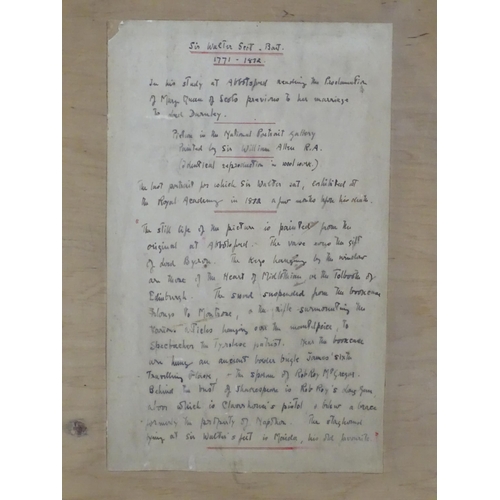 Sir Walter Scott - Bart.
1771 - 1832.
In his study at Abbotsford reading the Proclamation
of Mary Queen of Scots previous to her marriage
to Lord Darnley.
Picture in the National Portrait Gallery
Painted by Sir William Allen R.A.
(identical reproduction in wool work.)
The last portrait for which Sir Walter sat, exhibited at
the Royal Academy in 1832 a few weeks before his death.
"The still life of the picture is painted from the
original at Abbotsford:- The vase was the gift
of Lord Byron. The keys hanging by the window
are those of the Heart of Midlothian or the Tolbooth of
Edinburgh. The sword suspended from the bookcase
belongs to Montrose, & the rifle surmounting the
various articles hanging over the mantelpiece, to
Speckbacher the Tyrolese patriot. Near the bookcase
are hung an ancient border bugle James sixth
Travelling flask, - the sporan of Rob Roy McGregor.
Behind the bust of Shakespeare is Rob Roy's long gun
above which is Claverhouse's pistol & below a brace
formerly the property of Napoleon. The staghound
lying at Sir Walter's feet is Maida, his old favourite"